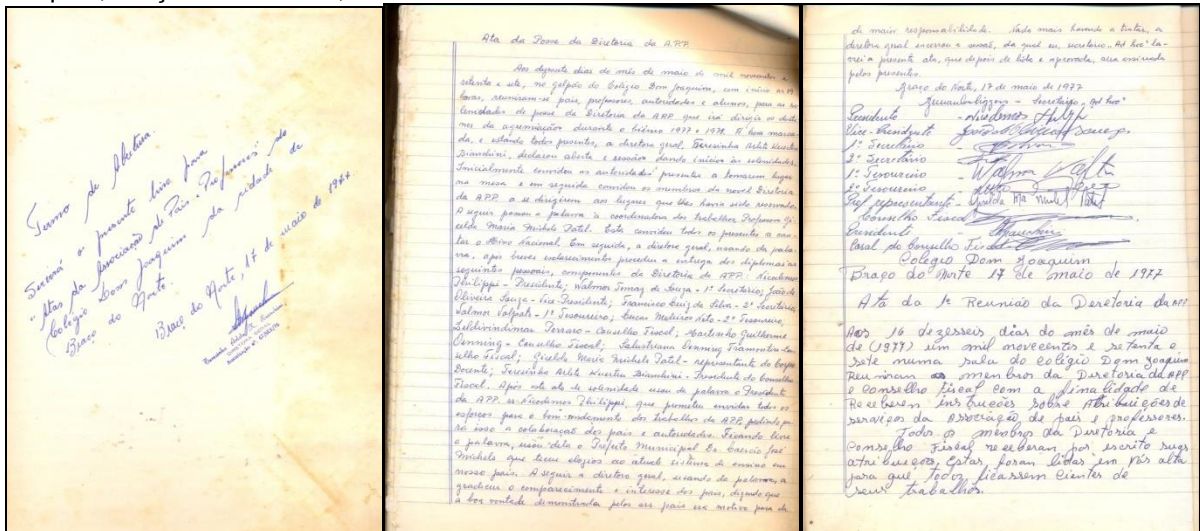 Termo de Abertura.
Servirá o presente livro para
"Atas da Associação de Pais e Professores" do
Colégio Dom Joaquim da cidade de
Braço do Norte.
Braço do Norte, 17 de maio de 1977.
Ata da Posse da Diretoria da A.P.P.
Aos dezessete dias do mês de maio de mil novecentos e
setenta e sete, no galpão do Colégio Dom Joaquim, com início às 19
horas, reuniram-se pais, professores, autoridades e alunos, para as so
lenidades de posse da Diretoria da APP que irá dirigir os desti
nos da agremiação durante o biênio 1977 e 1978. À hora marca-
da, e estando todos presentes, a diretora geral, Teresinha Arlete
Bianchini, declarou aberta a sessão dando início às solenidades.
Inicialmente convidou as autoridades presentes a tomarem lugar
na mesa e em seguida convidou os membros da novel Diretoria
da APP. a se dirigirem aos lugares que lhes havia sido reservado.
A seguir passou a palavra à coordenadora dos trabalhos Professora Gi
selda Maria Michels Patel. Esta convidou todos os presentes a can-
tar o Hino Nacional. Em seguida, a diretora geral, usando da pala-
vra, após breves esclarecimentos procedeu a entrega dos diplomas às
seguintes pessoas, componentes da Diretoria da APP: Nicodemos
Philippi - Presidente; Walmor de Souza - 1º Secretário; João de
Oliveira Souza - Vice-Presidente; Francisco Luiz da Silva - 2º Secretário
Walmor - 1º Tesoureiro; Lucas Medeiros Neto - 2º Tesoureiro,
- Conselho Fiscal; Martinho Guilherme
- Conselho Fiscal; Con-
selho Fiscal; Giselda Maria Michels Patel - representante do Corpo
Docente; Teresinha Arlete Bianchini - Presidente do Conselho
Fiscal. Após este ato de solenidade usou da palavra o Presidente
da APP. sr Nicodemos Philippi, que prometeu envidar todos os
esforços para o bom andamento dos trabalhos da APP, pedindo pa
ra isso a colaboração dos pais e autoridades. Ficando livre
a palavra, usou dela o Prefeito Municipal Dr. José
Michels que teceu elogios ao atual sistema de ensino em
nosso país. A seguir a diretora geral, usando da palavra, a
gradeceu o comparecimento e interesse dos pais, dizendo que
a boa vontade demonstrada pelos srs. pais era motivo para de
de maior responsabilidade. Nada mais havendo a tratar, a
diretora geral encerrou a sessão, da qual eu, secretário "Ad hoc" la-
vrei a presente ata, que depois de lida e aprovada, será assinada
pelos presentes.
Braço do Norte, 17 de maio de 1977
- Secretário "Ad hoc"
Presidente -
Vice-Presidente
1º Secretário
2º Secretário
1º Tesoureiro - Walmor
2º Tesoureiro
Prof representante - Giselda Ma Michels Patel
Conselho Fiscal
Presidente
Casal do Conselho Fiscal
Colégio Dom Joaquim
Braço do Norte 17 de maio de 1977
Ata da 1ª Reunião da Deretoria da APP
Aos 16 dezesseis dias do mês de maio
de (1977) um mil novecentos e setenta e
sete numa sala do colégio Dom Joaquim
Reuniram os menbros da Diretoria da APP
e conselho fiscal com a finalidade de
Receberem instruções sobre Atribuições de
serviços da Associação de pais e professores.
Todos os menbros da Diretoria e
Conselho Fiscal receberan por escrito suas
atribuições, Estas foran lidas em vós alta
para que todos ficassem cientes de
seus trabalhos.